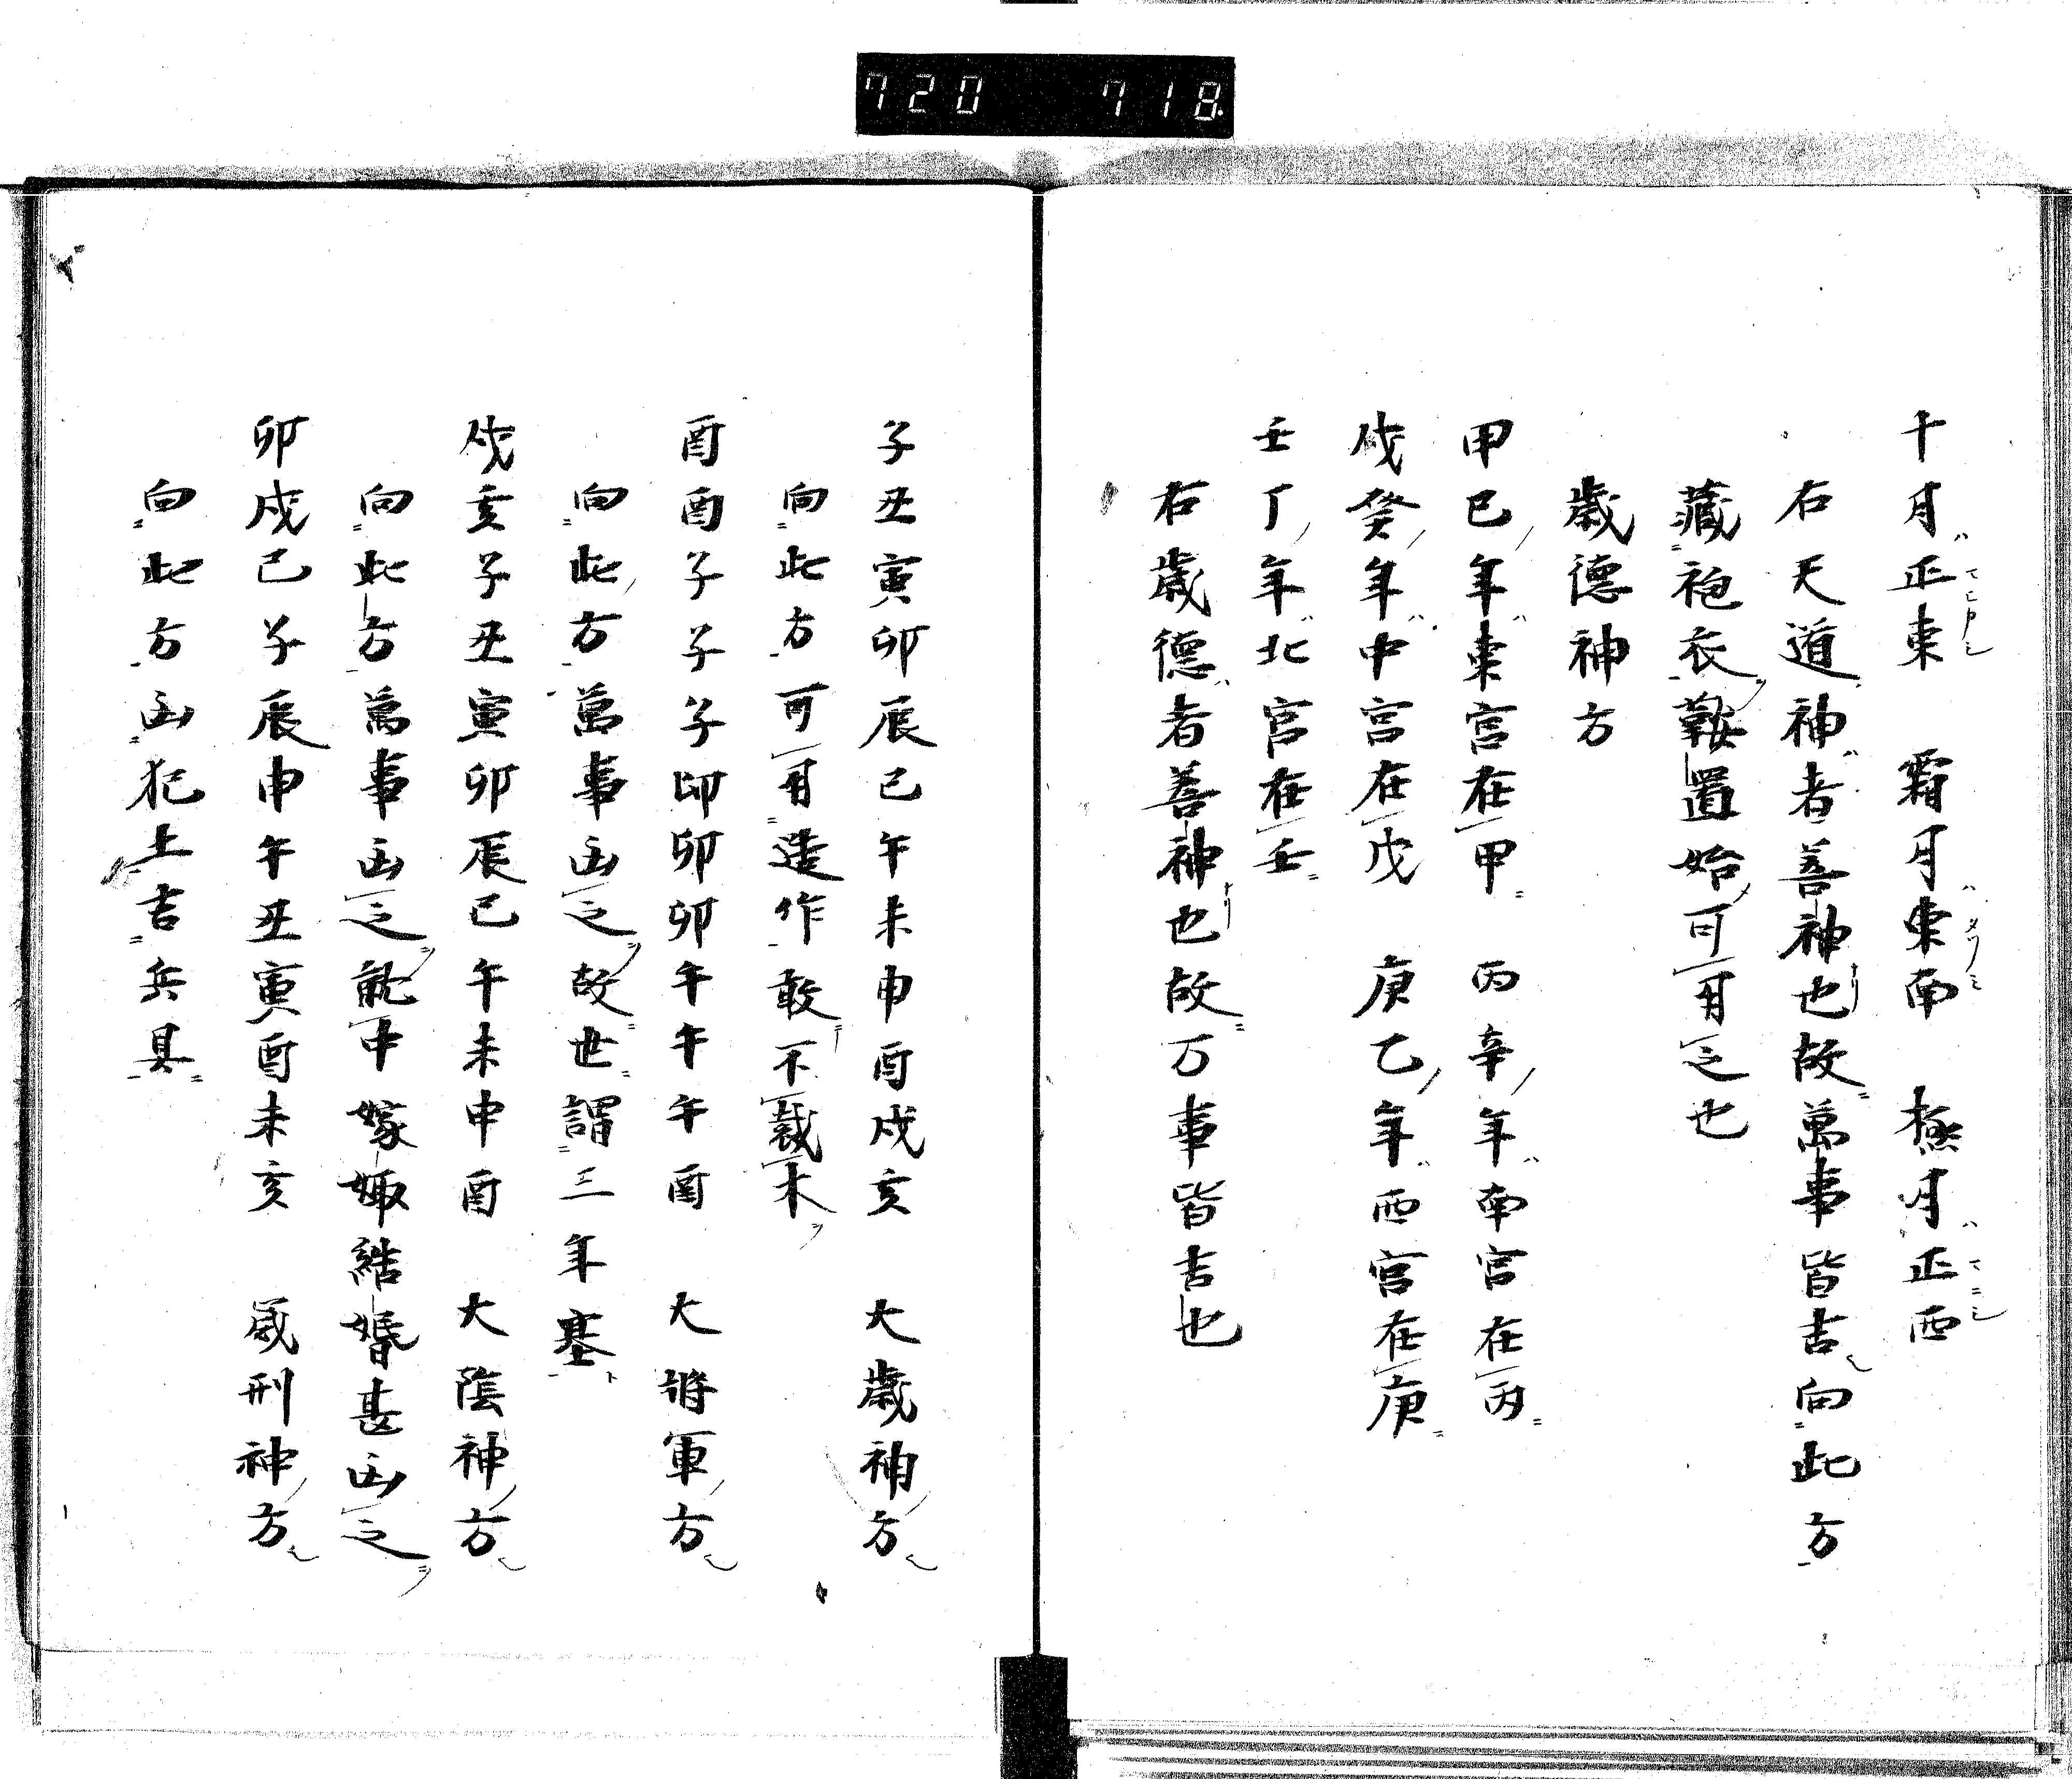 720 718
十月正東　霜月東南　極月正西
右天道神者善神也故萬事皆吉向此方
蔵袍衣鞍置始可用之也
歳徳神方
甲己年東宮在甲　丙辛年南宮在丙
戊癸年中宮在戊　庚乙年西宮在庚
壬丁年北宮在壬
右歳徳者善神也故万事皆吉也
子丑寅卯辰巳午未申酉戌亥　大歳神方
向此方可用造作敢不裁木
酉酉子子子卯卯卯午午午酉　大将軍方
向此方萬事凶之故世謂三年塞
戌亥子丑寅卯辰巳午未申酉　大陰神方
向此方萬事凶之就中嫁娵結婚甚凶之
卯戌巳子辰申午丑寅酉未亥　歳刑神方
向此方凶犯土吉兵具